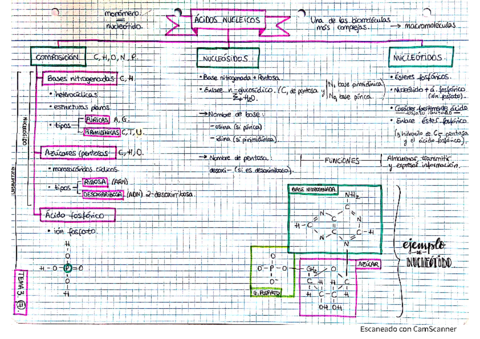 monómero
nucleótido.
ÁCIDOS NUCLEICOS
Una de las biomoléculas
más complejas.
→ macromoléculas.
COMPOSICIÓN
C, H, O, N, P.
Bases nitrogenadas C, H
• heterocíclicas
• estructuras planas
• tipos
PÚRICAS A, G.
PIRIMIDÍNICAS C, T, U.
Azúcares (pentosas) C, H, O.
• monosacáridos cíclicos
• tipos
RIBOSA (ARN)
DESOXIRRIBOSA (ADN) 2-desoxirribosa
Ácido fosfórico
• ión fosfato.
H
O
H-O-P-O
O
H
TEMA 3.
NUCLEÓSIDOS
• Base nitrogenada + Pentosa.
• Enlace n-glucosídico. (C1 de pentosa y
N1 base pirimidínica
N9 base púrica.
→ Nombre de base:
- osina (si púrica)
- idina (si pirimidínica)
→ Nombre de pentosa.
desoxi- (si es desoxirribosa).
NUCLEÓTIDOS
• Ésteres fosfóricos.
• Nucleósido + á. fosfórico
(ión fosfato).
• Carácter fuertemente ácido
• Enlace éster fosfórico
y el ácido fosfórico).
FUNCIONES
Almacenar, transmitir
y expresar información.
BASE NITROGENADA
NH2
C
N
C
N
H-C
C
C
N
N
H
O
O-P-O
O
Á. FOSFATO
CH2
O
AZÚCAR
C
C
H
H
H
H
C
C
OH
OH
ejemplo
NUCLEÓTIDO
Escaneado con CamScanner